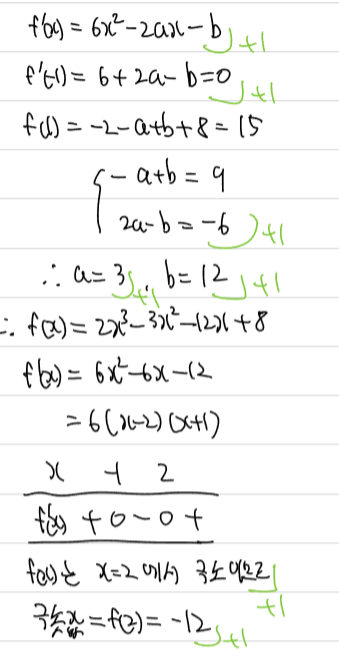 f'(x) = 6x² - 2ax - b +1
f'(-1) = 6 + 2a - b = 0 +1
f(-1) = -2 - a + b + 8 = 15
- a + b = 9
2a - b = -6 +1
∴ a = 3, b = 12 +1 +1
∴ f(x) = 2x³ - 3x² - 12x + 8
f'(x) = 6x² - 6x - 12
= 6(x-2)(x+1)
x -1 2
f'(x) + 0 - 0 +
f(x)는 x=2에서 극소이므로 +1
극솟값 = f(2) = -12 +1